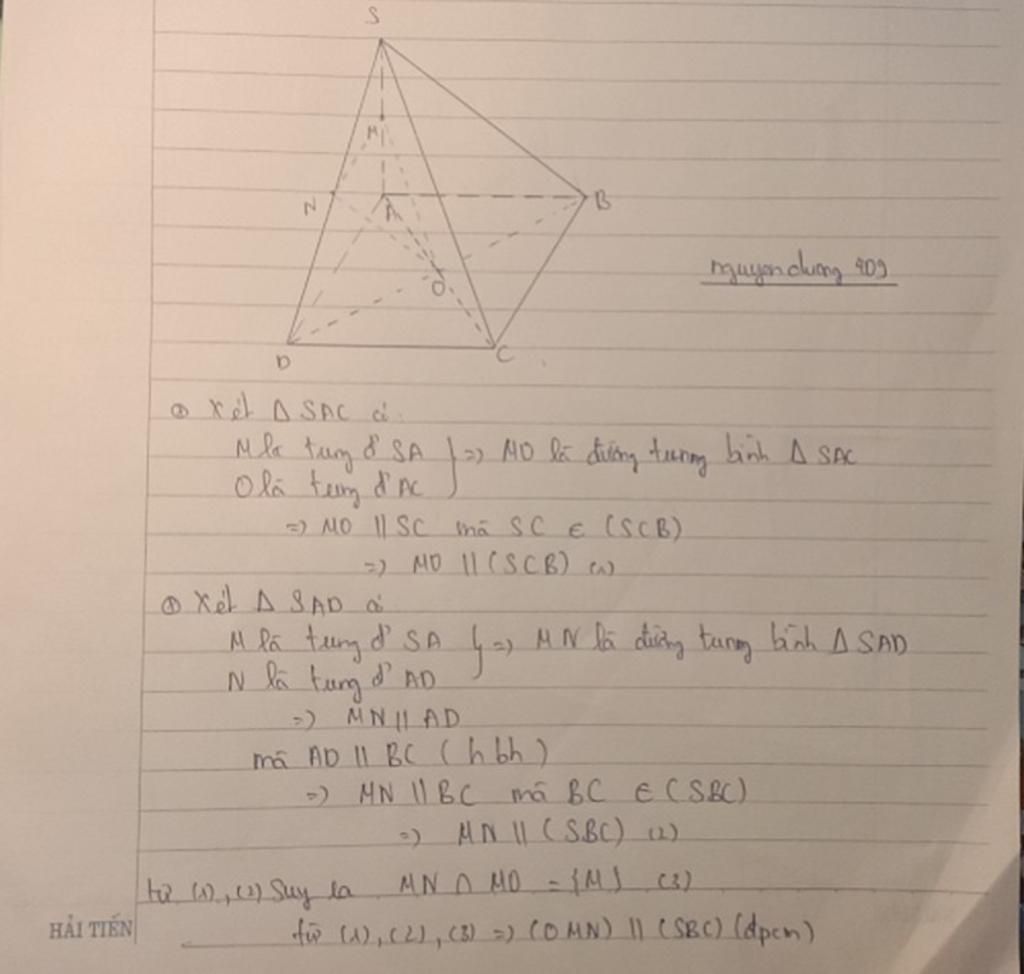 S
M
N
A
B
O
nguyenduong 909
D
C
Xét Δ SAC có
M là trung đ' SA } => MO là đường trung bình Δ SAC
O là trung đ' AC
=> MO // SC mà SC ∈ (SCB)
=> MO // (SCB) (1)
Xét Δ SAD có
M là trung đ' SA } => MN là đường trung bình Δ SAD
N là trung đ' AD
=> MN // AD
mà AD // BC (hbh)
=> MN // BC mà BC ∈ (SBC)
=> MN // (SBC) (2)
từ (1), (2) Suy ra MN ∩ MO = {M} (3)
từ (1), (2), (3) => (OMN) // (SBC) (đpcm)
HẢI TIẾN